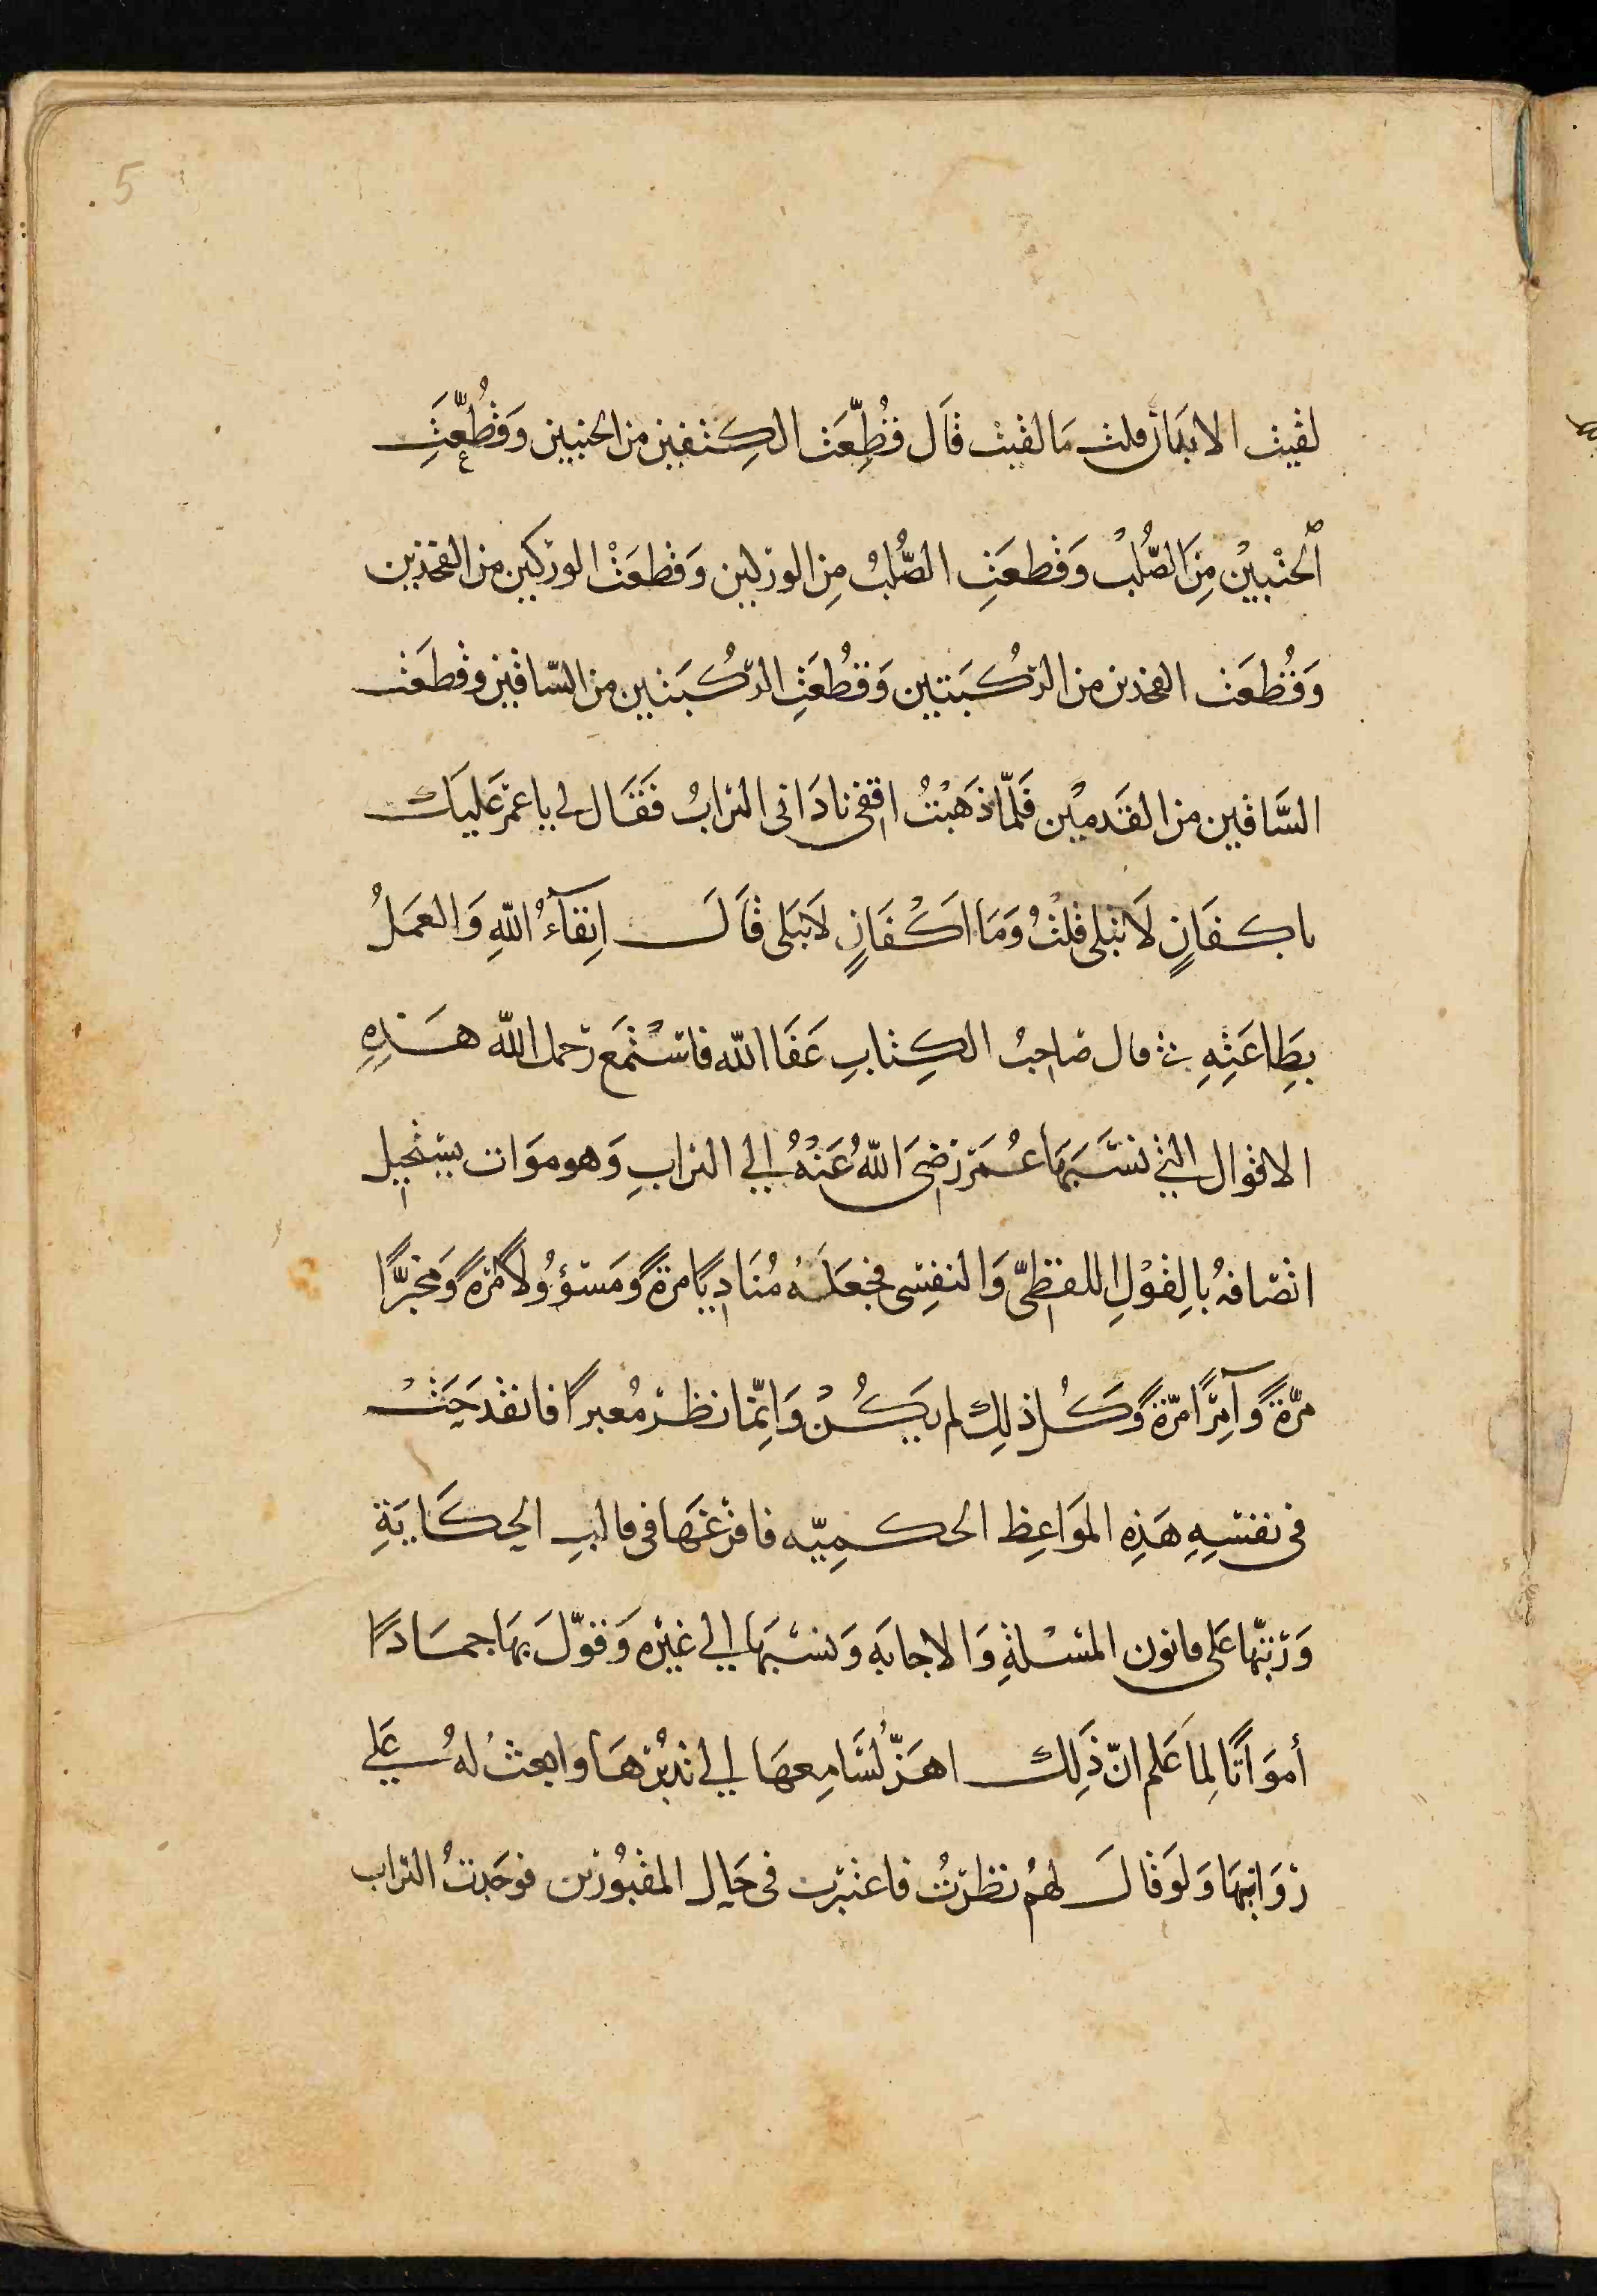 5
لقيت الابدان قلت ما لقيت قَال قُطِّعَت الكِتفين من الجنبين وَقُطِّعَتِ
الجنْبينْ مِنَ الصُّلبْ وَقطعَتِ الصُّلبْ مِن الوركين وَقطعَتْ الوركين من الفخذين
وَقُطعَت الفخذين من الرُكبَتين وَقُطعَتِ الرُكبَتين من السّاقين وقطعَت
السَّاقين من القَدمين فَلمّا ذهَبْتُ اقفى نادَانى الترابُ فَقَال لى يا عمر عَليك
باكفَانٍ لَا تبلى قلْتُ وَمَا اَكْفَانٍ لَا تبَلى قَالَ اِتقآءُ اللّهِ وَالعمَلُ
بِطَاعَتِهِ قال صَاحِبُ الكِتابِ عَفَا اللّه فاسْتمَع رحمك اللّه هَذِهِ
الاقوال التى نسَبَهَا عُمَر رَضىَ اللّهُ عَنْهُ الى الترابِ وَهو موَات يستحيل
اتصَافهُ بالِقوْلِ اللفظىّ وَالنفِسى فجعَلهُ مُنَادِيًا مرةً وَمَسؤوُلاً مرةً وَمخبرًا
مرّةً وَآمِرًا مرّةً وَكُل ذلِك لم يكُنْ وَاِنّما نظر مُعبرًا فانقدَحَتْ
فى نفسِهِ هَذِه الموَاعِظ الحكمِيّه فافرَغهَا فى قالبِ الحِكَايَةِ
وَرَتبّها عَلى قانون المسْلةِ وَالاجابَه وَنسَبَهَا الى غيْره وَقوّلَ بهَا جمَادًا
أموَاتًا لِما عَلم انّ ذَلِك اهَزّ لسَامِعهَا الى تدبرهَا وابعث لهُ عَلى
رَوَايتهَا وَلوَ قالَ لهُم نظرتُ فاعتبرت فى حَالِ المقبُورين فوجَدتُ التراب